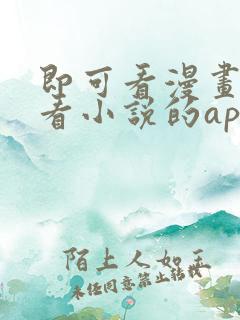 即可看漫畫
看小說的ap
陌上人如玉
未经同意禁止转载